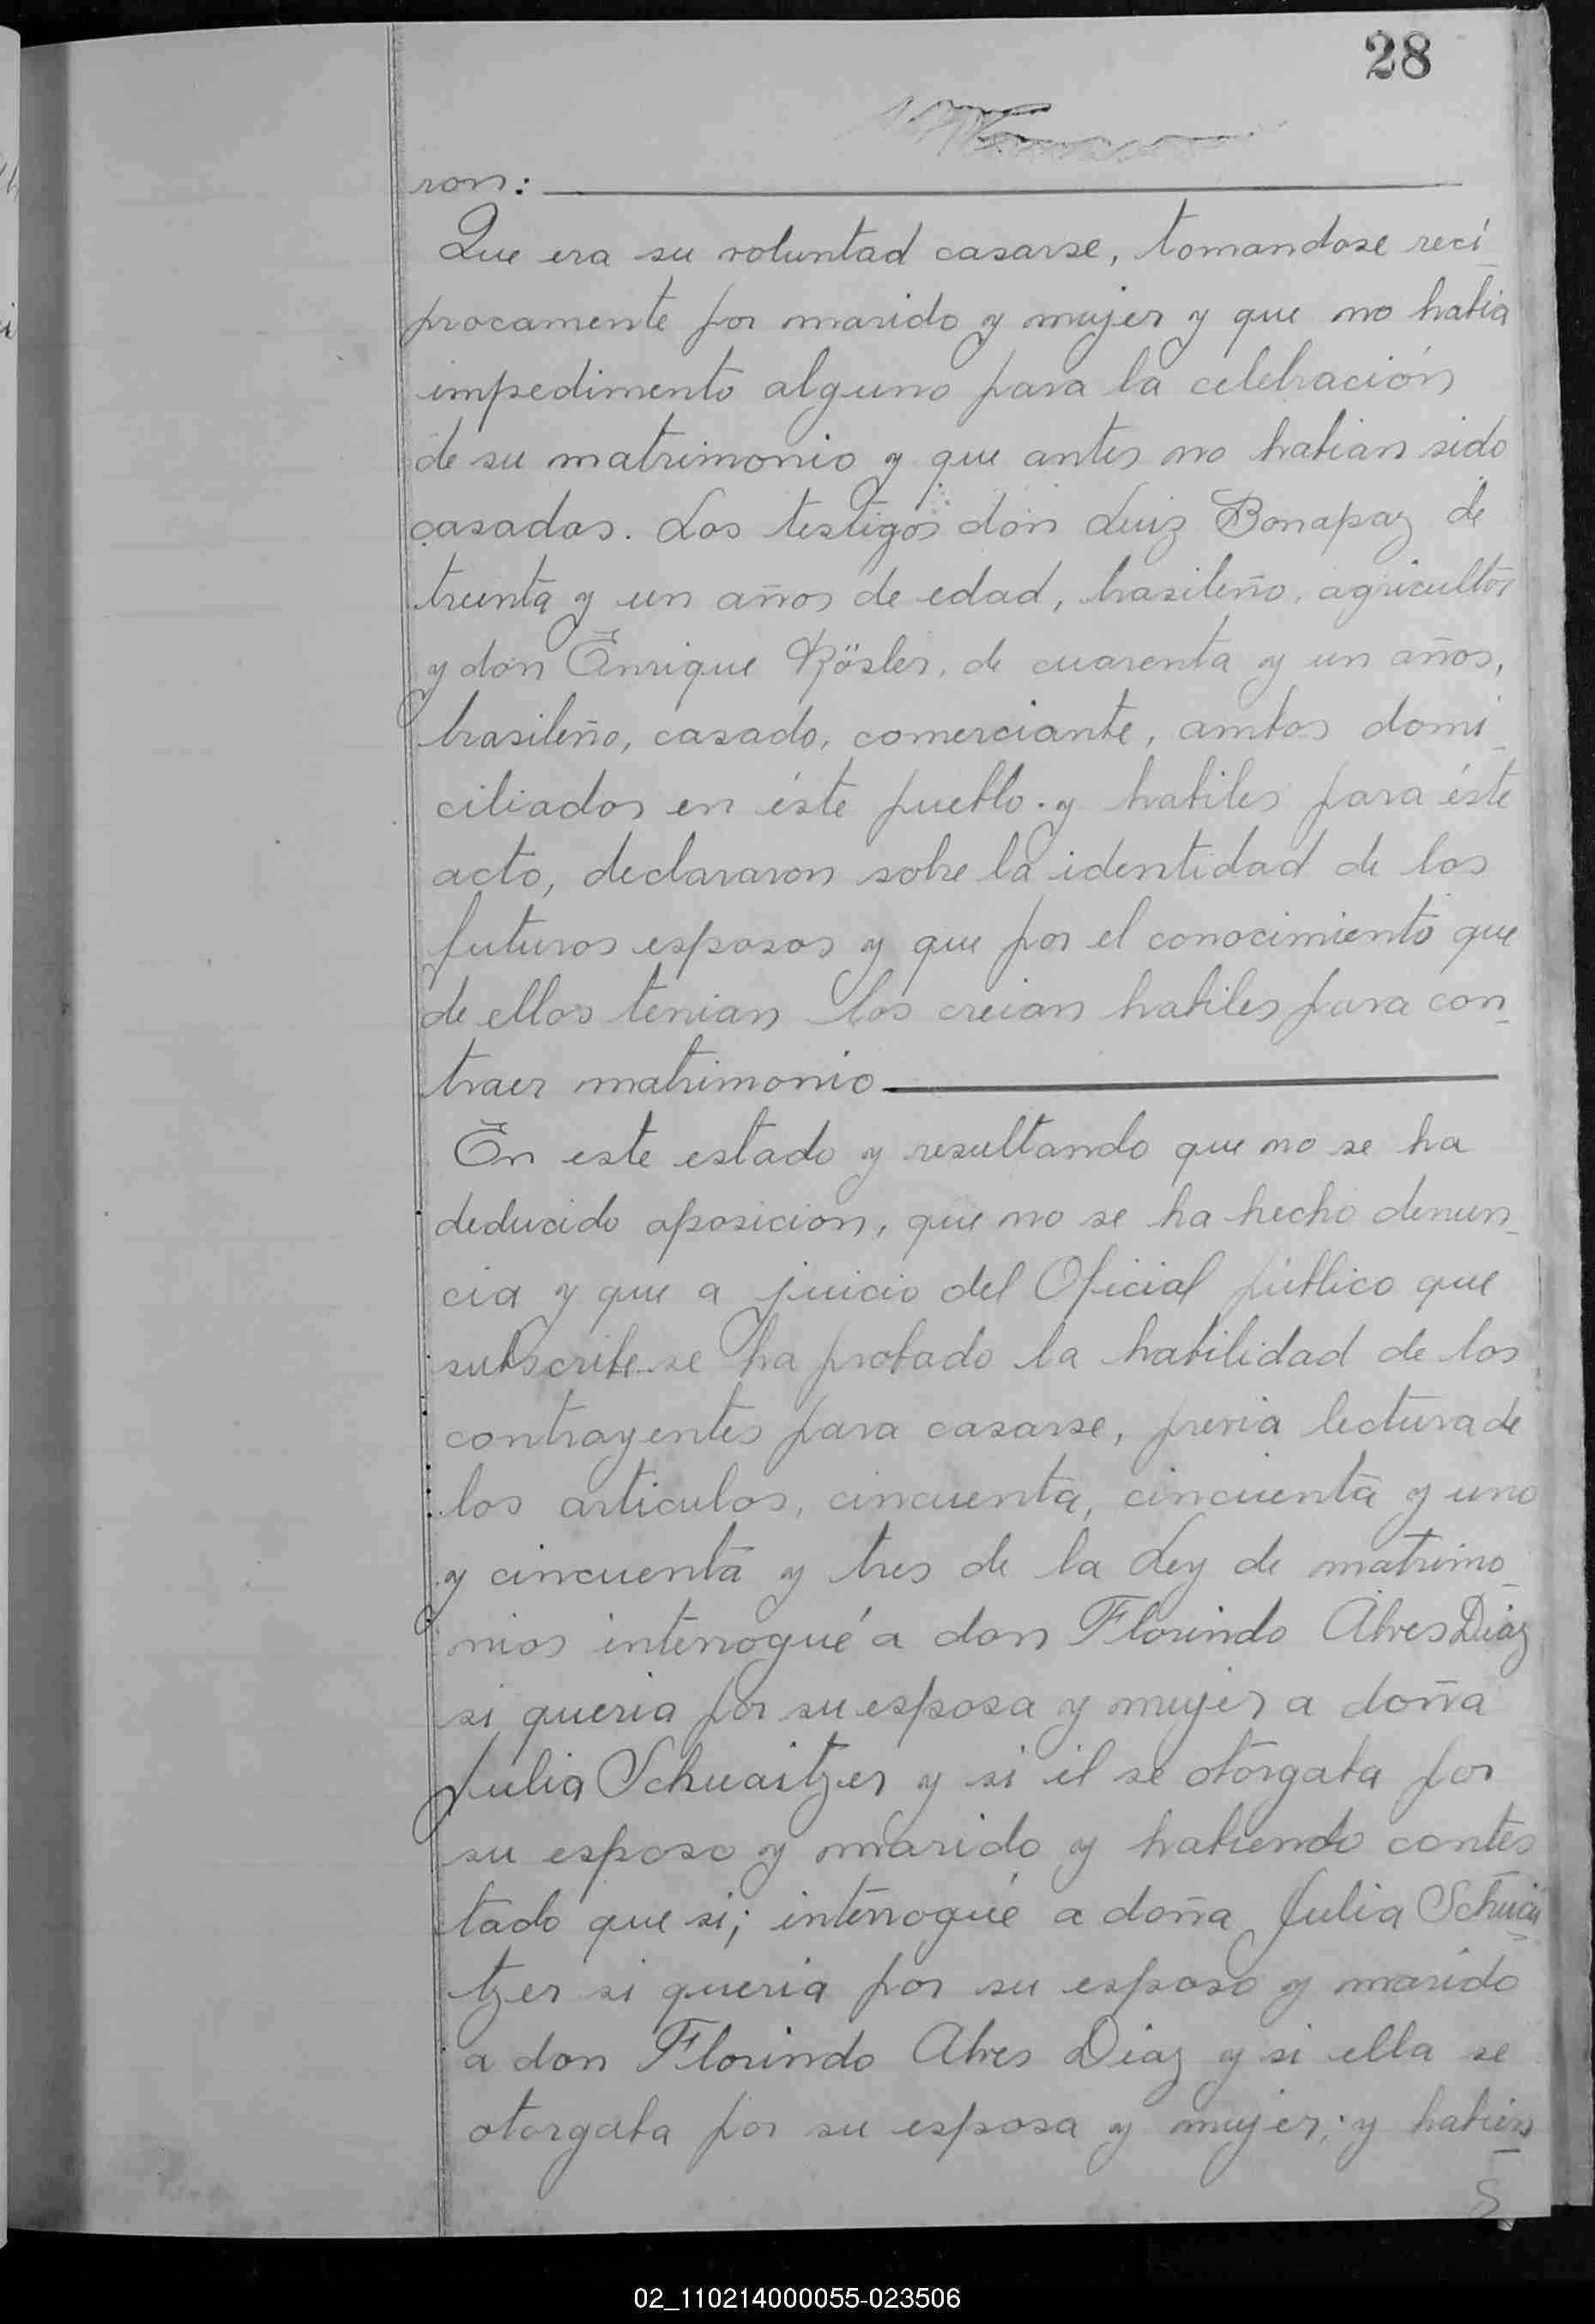 28
ron:
Que era su voluntad casarse, tomandose reci_
procamente por marido y mujer y que no habia
impedimento alguno para la celebración
de su matrimonio y que antes no habian sido
casados. Los testigos don Luiz Bonapaz de
treinta y un años de edad, brasileño, agricultor
y don Enrique Rösler, de cuarenta y un años,
brasileño, casado, comerciante, ambos domi_
ciliados en éste pueblo y habiles para éste
acto, declararon sobre la identidad de los
futuros esposos y que por el conocimiento que
de ellos tenian los creian habiles para con_
traer matrimonio
En este estado y resultando que no se ha
deducido oposicion, que no se ha hecho denun_
cia y que a juicio del Oficial público que
subscribe se ha probado la habilidad de los
contrayentes para casarse, previa lectura de
los articulos, cincuenta, cincuenta y uno
y cincuenta y tres de la Ley de matrimo_
nios interrogué a don Florindo Alves Diaz
si queria por su esposa y mujer a doña
Julia Schuaitzer y si él se otorgaba por
su esposo y marido y habiendo contes
tado que si; interrogué a doña Julia Schuai_
tzer si queria por su esposo y marido
a don Florindo Alves Diaz y si ella se
otorgaba por su esposa y mujer; y habien_
02_110214000055-023506